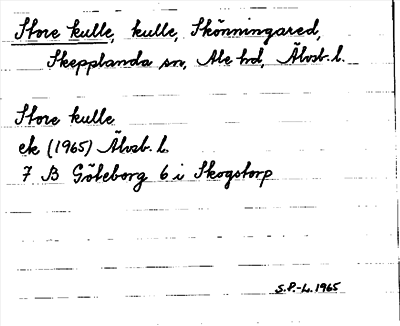 Store kulle, kulle, Skönningared,
Skepplanda sn, Ale hd, Älvsb. l.
Store kulle
ek (1965) Älvsb. l.
7 B Göteborg 6 i Skogstorp
S.P.-L. 1965